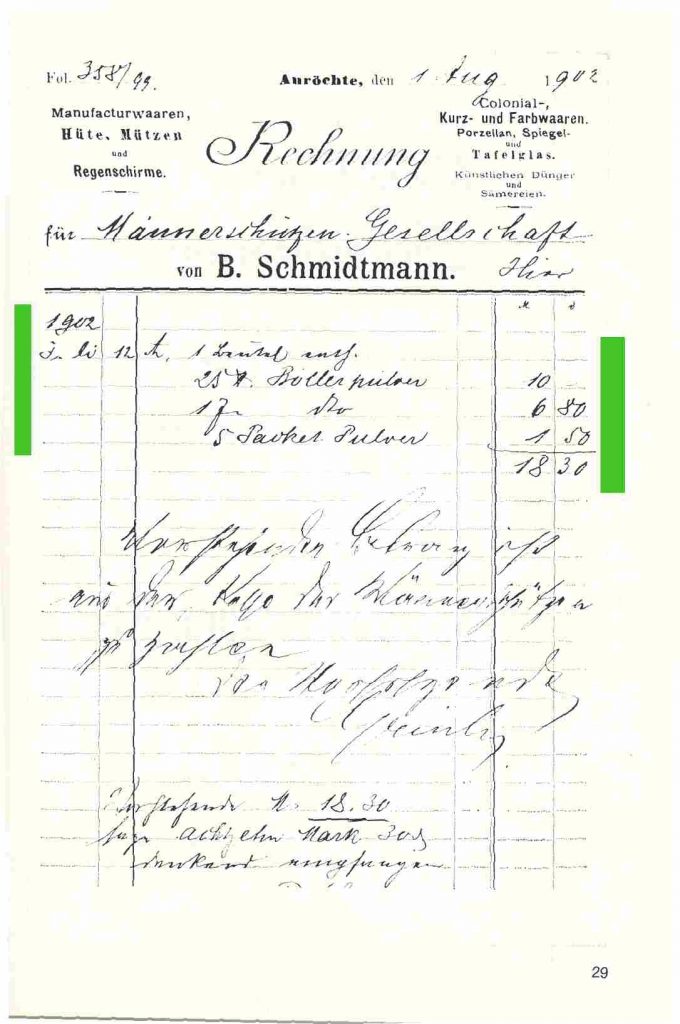 Fol. 358/99.
Anröchte, den 1. Aug. 1902
Manufacturwaaren,
Hüte, Mützen
und
Regenschirme.
Rechnung
Colonial-,
Kurz- und Farbwaaren.
Porzellan, Spiegel-
und
Tafelglas.
Künstlichen Dünger
und
Sämereien.
für Männerschützen-Gesellschaft
von B. Schmidtmann. Hier
1902
Juli 12 1 Beutel enth.
25 Böllerpulver 10 –
17 dto 6 80
5 Packet Pulver 1 50
18 30
Vorstehender Betrag ist
aus der Kasse der Männerschützen
zu zahlen
Der Vorsitzende
Vorstehende M. 18.30
sage achtzehn Mark 30
dankend empfangen
29